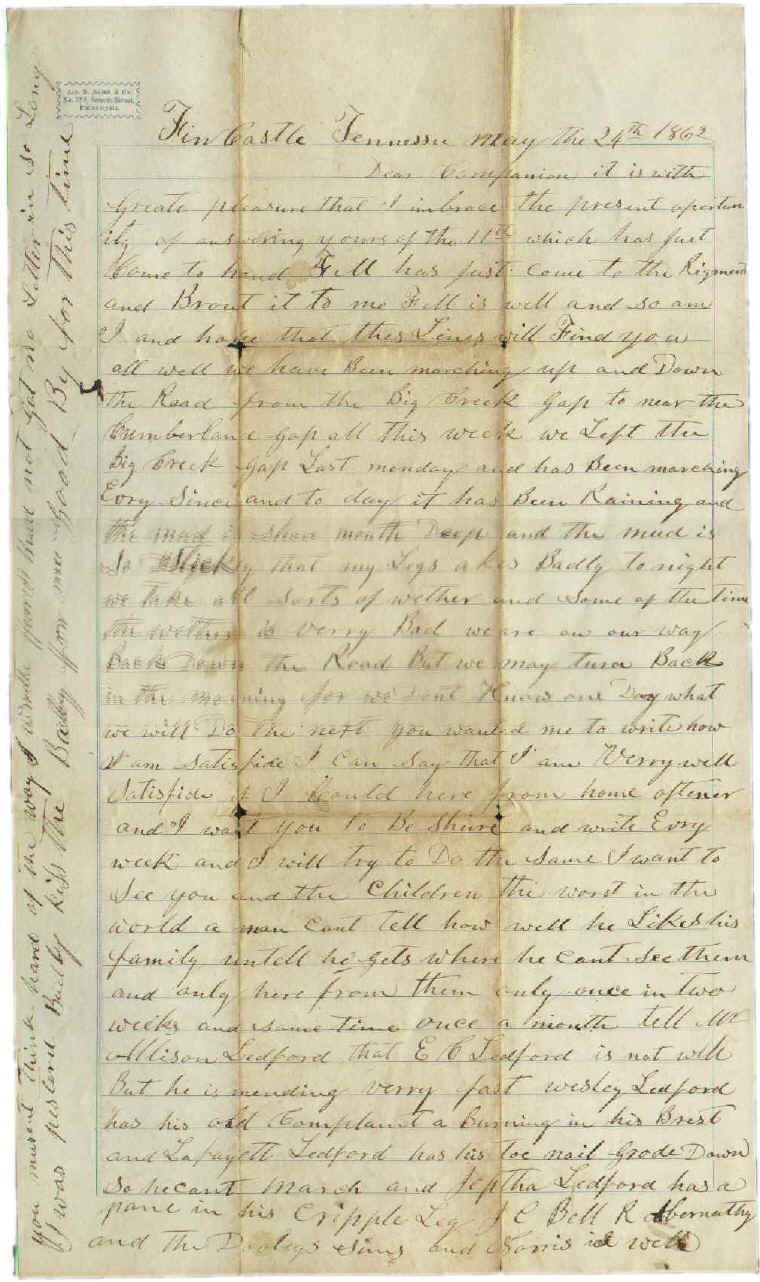 Fin Castle Tennessee may the 24th 1862
Dear Companion it is with
Greate pleasure that I imbrace the present oportun
ity of answering yours of the 11th which has just
Come to hand Fell has just come to the Rigment
and Brout it to me Fell is well and so am
I and hope that this Lines will Find you
all well we have Been marching up and Down
the Road from the Big Creek Gap to near the
Cumberland gap all this week we Left the
Big Creek Gap Last monday and has Been marching
Evry Since and to day it has Been Raining and
the mud is shoe mouth Deep and the mud is
So that my Legs akes Badly to night
we take all Sorts of wether and Some of the time
the wether is verry Bad we are on our way
Back Down the Road But we may turn Back
in the morning for we dont Know one Day what
we will Do the next you wanted me to write how
I am Satisfide I Can Say that I am Verry well
Satisfide if I Could here from home oftener
and I want you to Be Shure and write Evry
week and I will try to Do the Same I want to
See you and the Children the worst in the
world a man Cant tell how well he Likes his
family untell he gets where he cant see them
and only here from them only once in two
weeks and some time once a month tell Mr
Allison Ledford that E C Ledford is not well
But he is mending verry fast wesley Ledford
has his old Complaint a Burning in his Brest
and Lafayett Ledford has his toe nail Grode Down
So he cant march and Jeptha Ledford has a
pane in his Cripple Leg J C Bell R Abernathy
and the Dooleys Sims and Norris is well
you musent think hard of the way I write you have not got no Letter in so Long
I was Badly kiss the Baby for me Good By for this time